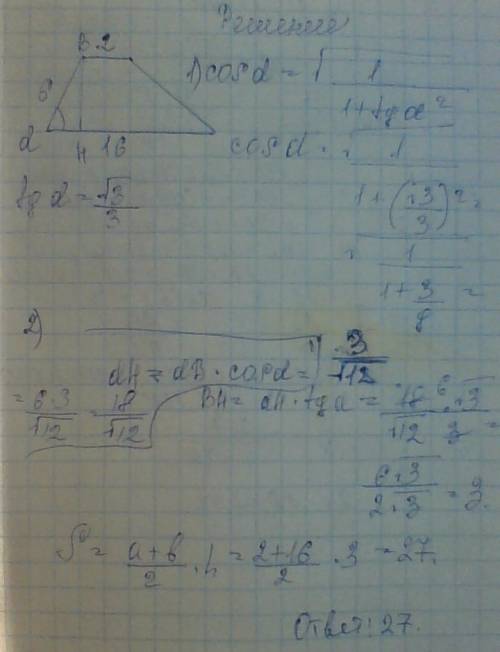 Решение
B 2
6
α
H 16
tg α = √3/3
1) cos α = √ 1/(1 + tg α²)
cos α = √ 1/(1 + (√3/3)²) =
= √ 1/(1 + 3/9) = 3/√12
2) αH = αB · cos α =
= 6·3/√12 = 18/√12
BH = αH · tg α = 18/√12 · √3/3 =
6√3/2√3 = 3.
S = (a+b)/2 · h = (2+16)/2 · 3 = 27.
Ответ: 27.